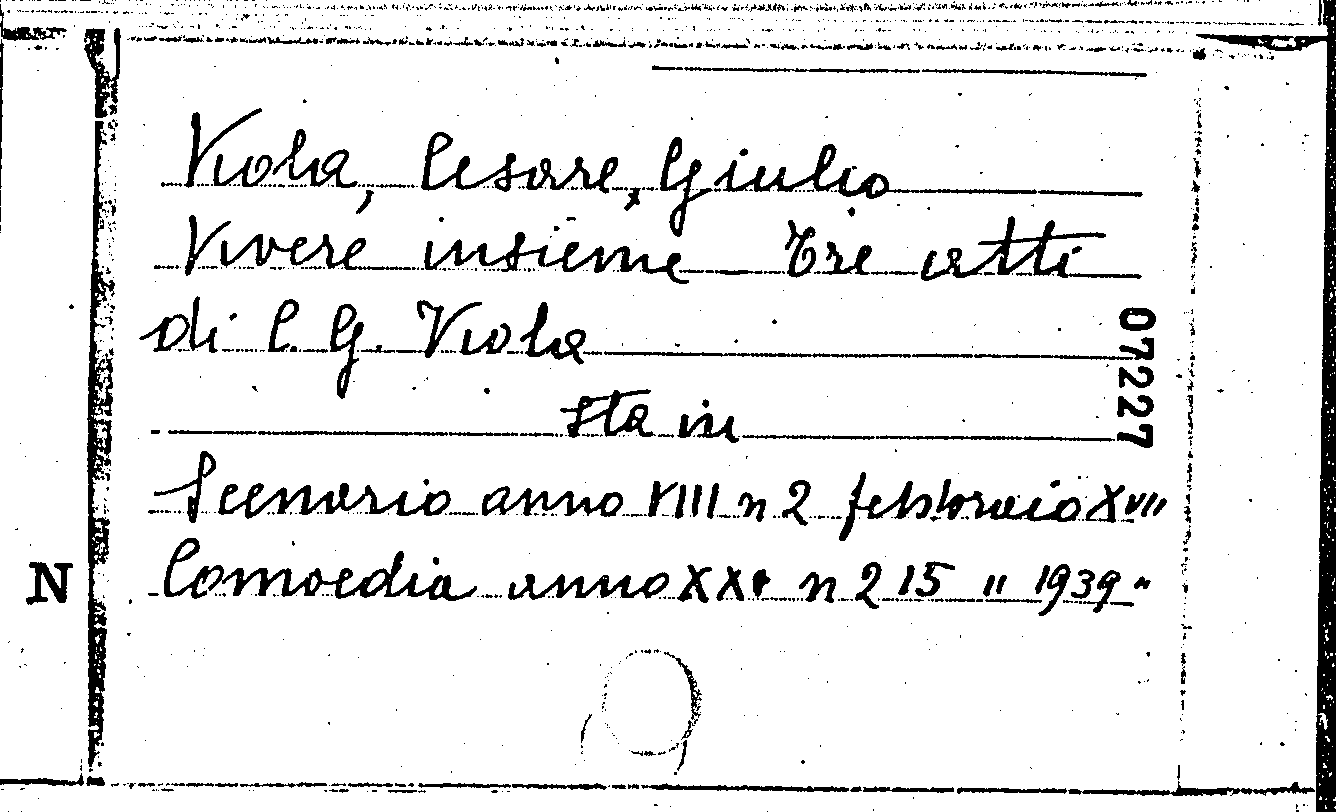 Viola, Cesare, Giulio
Vivere insieme - Tre atti
di C. G. Viola
sta in
Scenario anno VIII n 2 febbraio XVII
Comoedia anno XXI n 2 15 " 1939 "
07227
N